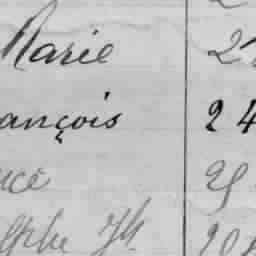 Marie 2
ançois 24
nce 25
lphe Jh 20